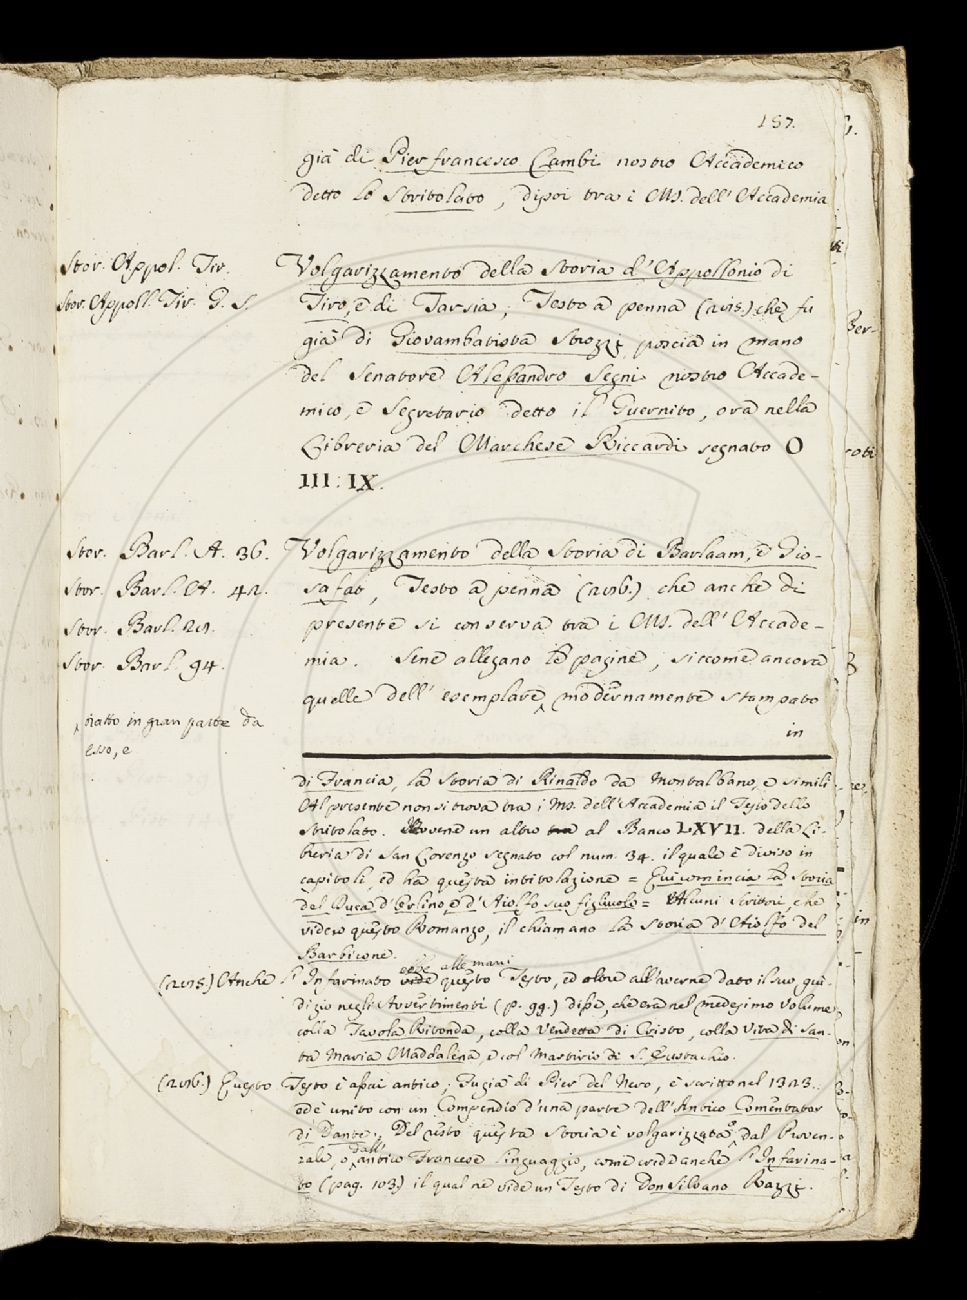 157.
già di Pierfrancesco Cambi nostro Accademico
detto lo Stritolato, dipoi tra i MS. dell'Accademia
Stor. Appol. Tir.
Stor. Appoll. Tir. G. S.
Volgarizzamento della Storia d'Appollonio di
Tiro, e di Tarsia, Testo a penna (205.) che fu
già di Giovambatista Strozzi, poscia in mano
del Senatore Alessandro Segni nostro Accade-
mico, e Segretario detto il Guernito, ora nella
Libreria del Marchese Riccardi segnato O
III: IX.
Stor. Barl. A. 36.
Stor. Barl. A. 42.
Stor. Barl. 21.
Stor. Barl. 94.
Volgarizzamento della Storia di Barlaam, e Gio-
safat, Testo a penna (206.) che anche di
presente si conserva tra i MS. dell'Accade-
mia. Sene allegano le pagine, siccome ancora
quelle dell'esemplare modernamente stampato
tratto in gran parte da
esso, e
in
di Francia, la Storia di Rinaldo da Montalbano, e simili
Al presente non si trova tra i MS. dell'Accademia il Testo dello
Stritolato. Ovvene un altro al Banco LXVII. della Li-
breria di San Lorenzo segnato col num. 34. il quale è diviso in
capitoli, ed ha questa intitolazione = Qui comincia la Storia
del Duca d'Orlino, e d'Aiolfo suo figliuolo = Alcuni Scrittori, che
videro questo Romanzo, il chiamano la Storia d'Aiolfo del
Barbicone.
(205.) Anche l'Infarinato ebbe alle mani questo Testo, ed oltre all'averne dato il suo giu-
dizio negli Avvertimenti (p. 99.) disse, che era nel medesimo volume
colla Tavola Ritonda, colla Vendetta di Cristo, colla Vita di San-
ta Maria Maddalena, e col Martirio di S. Eustachio.
(206.) Questo Testo è assai antico, Fu già di Pier del Nero, è scritto nel 1323.
ed è unito con un Compendio d'una parte dell'Antico Comentator
di Dante. Del resto questa Storia è volgarizzata o dal Proven-
zale, o dall'antico Francese linguaggio, come crede anche l'Infarina-
to (pag. 103) il qual ne vide un Testo di Don Silvano Razzi.